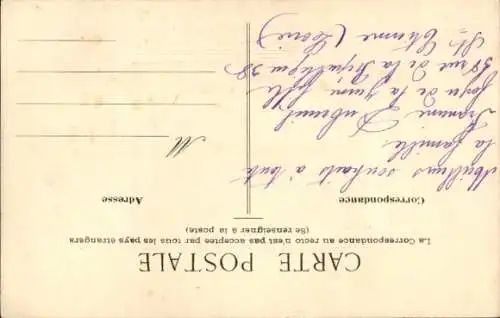 CARTE POSTALE
La Correspondance au recto n'est pas acceptée par tous les pays étrangers
(Se renseigner à la poste)
Correspondance
Adresse
Meilleurs souhaits à toute
la famille
de la
38 rue de la République 38
St Etienne (Loire)
M